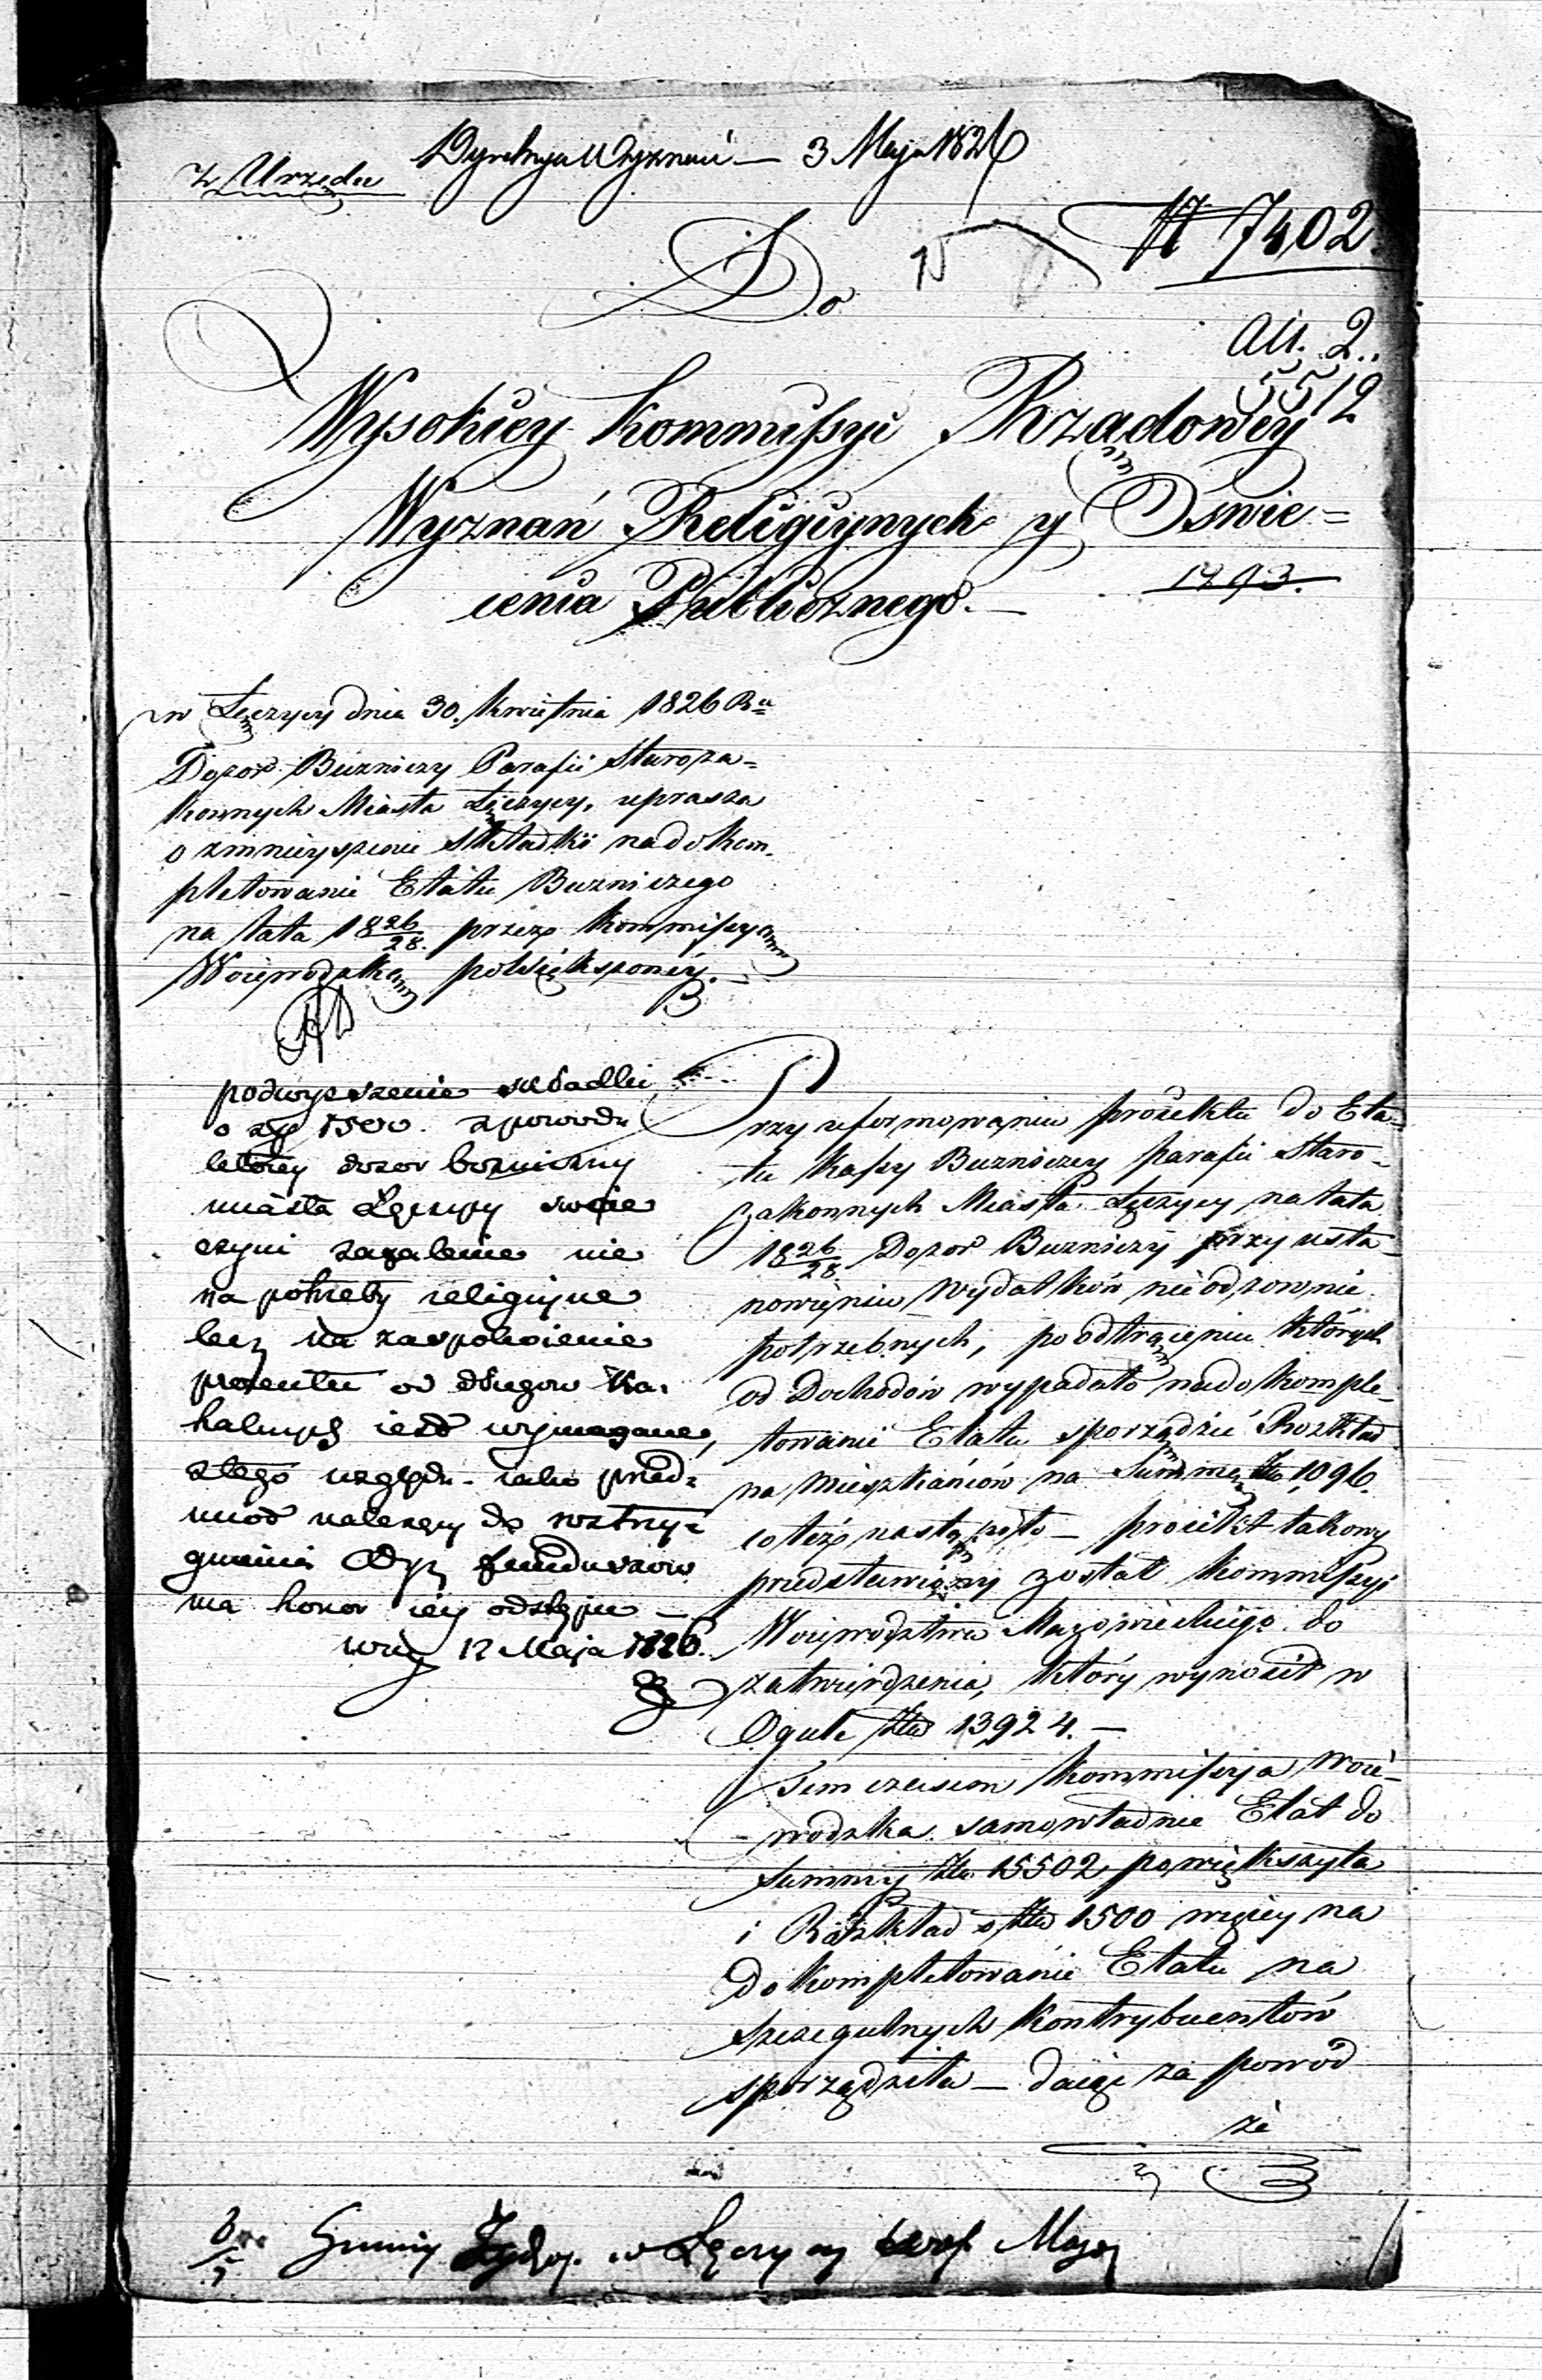 Z Urzędu
Dyrekcya Wyznań — 3 Maja 1826
N 7402.
Do
All. 2.
5512
Wysokiey Kommissyi Rządowey
Wyznań Religiynych y Oświe=
cenia Publicznego. —
1493.
w Łęczycy dnia 30. Kwietnia 1826 Ru
Dozor Buzniczy Parafii Staroza=
konnych Miasta Łęczycy, uprasza
o zmnieyszenie Składki na dokom=
pletowanie Etatu Buzniczego
na lata 1826/28. przez Kommissyą
Woiewodzką powiększoney. —
podwyższenie składki
o złp 1500. z powodu
którey dozor bozniczny
miasta Łęczycy swoie
czyni zażalenie nie
na potrzeby religiyne
lecz na zaspokoienie
procentu od długow Ka=
halnych iest wymagane,
z tego względu iako przed=
miot należący do rostrzy=
gnienia Dyr funduszow
ma honor iey odstąpić —
12 Maja 1826.
Przy uformowaniu proiektu do Eta=
tu Kassy Buzniczey parafii Staro=
zakonnych Miasta Łęczycy na lata
1826/28. Dozor Buzniczy przy usta=
nowieniu Wydatków nieodzownie
potrzebnych, po odtrąceniu których
od Dochodów wypadało na dokomple=
towanie Etatu sporządzić Rozkład
na Mieszkańców na Summę Złp 1096.
co też nastąpiło — proiekt takowy
przedstawiony został Kommissyi
Woiewodztwa Mazowieckiego do
zatwierdzenia, który wynosił w
Ogule Złp 13924. —
Tem czasem Kommissyja Woie=
wodzka samowładnie Etat do
Summy Złp 15502 powiększyła
i Rozkład o Złp 1500 więcey na
dokompletowanie Etatu na
szczegulnych Kontrybuentów
sporządziła — daiąc za powód
że
Gminy Żydow. w Łęczycy woj. Mazow